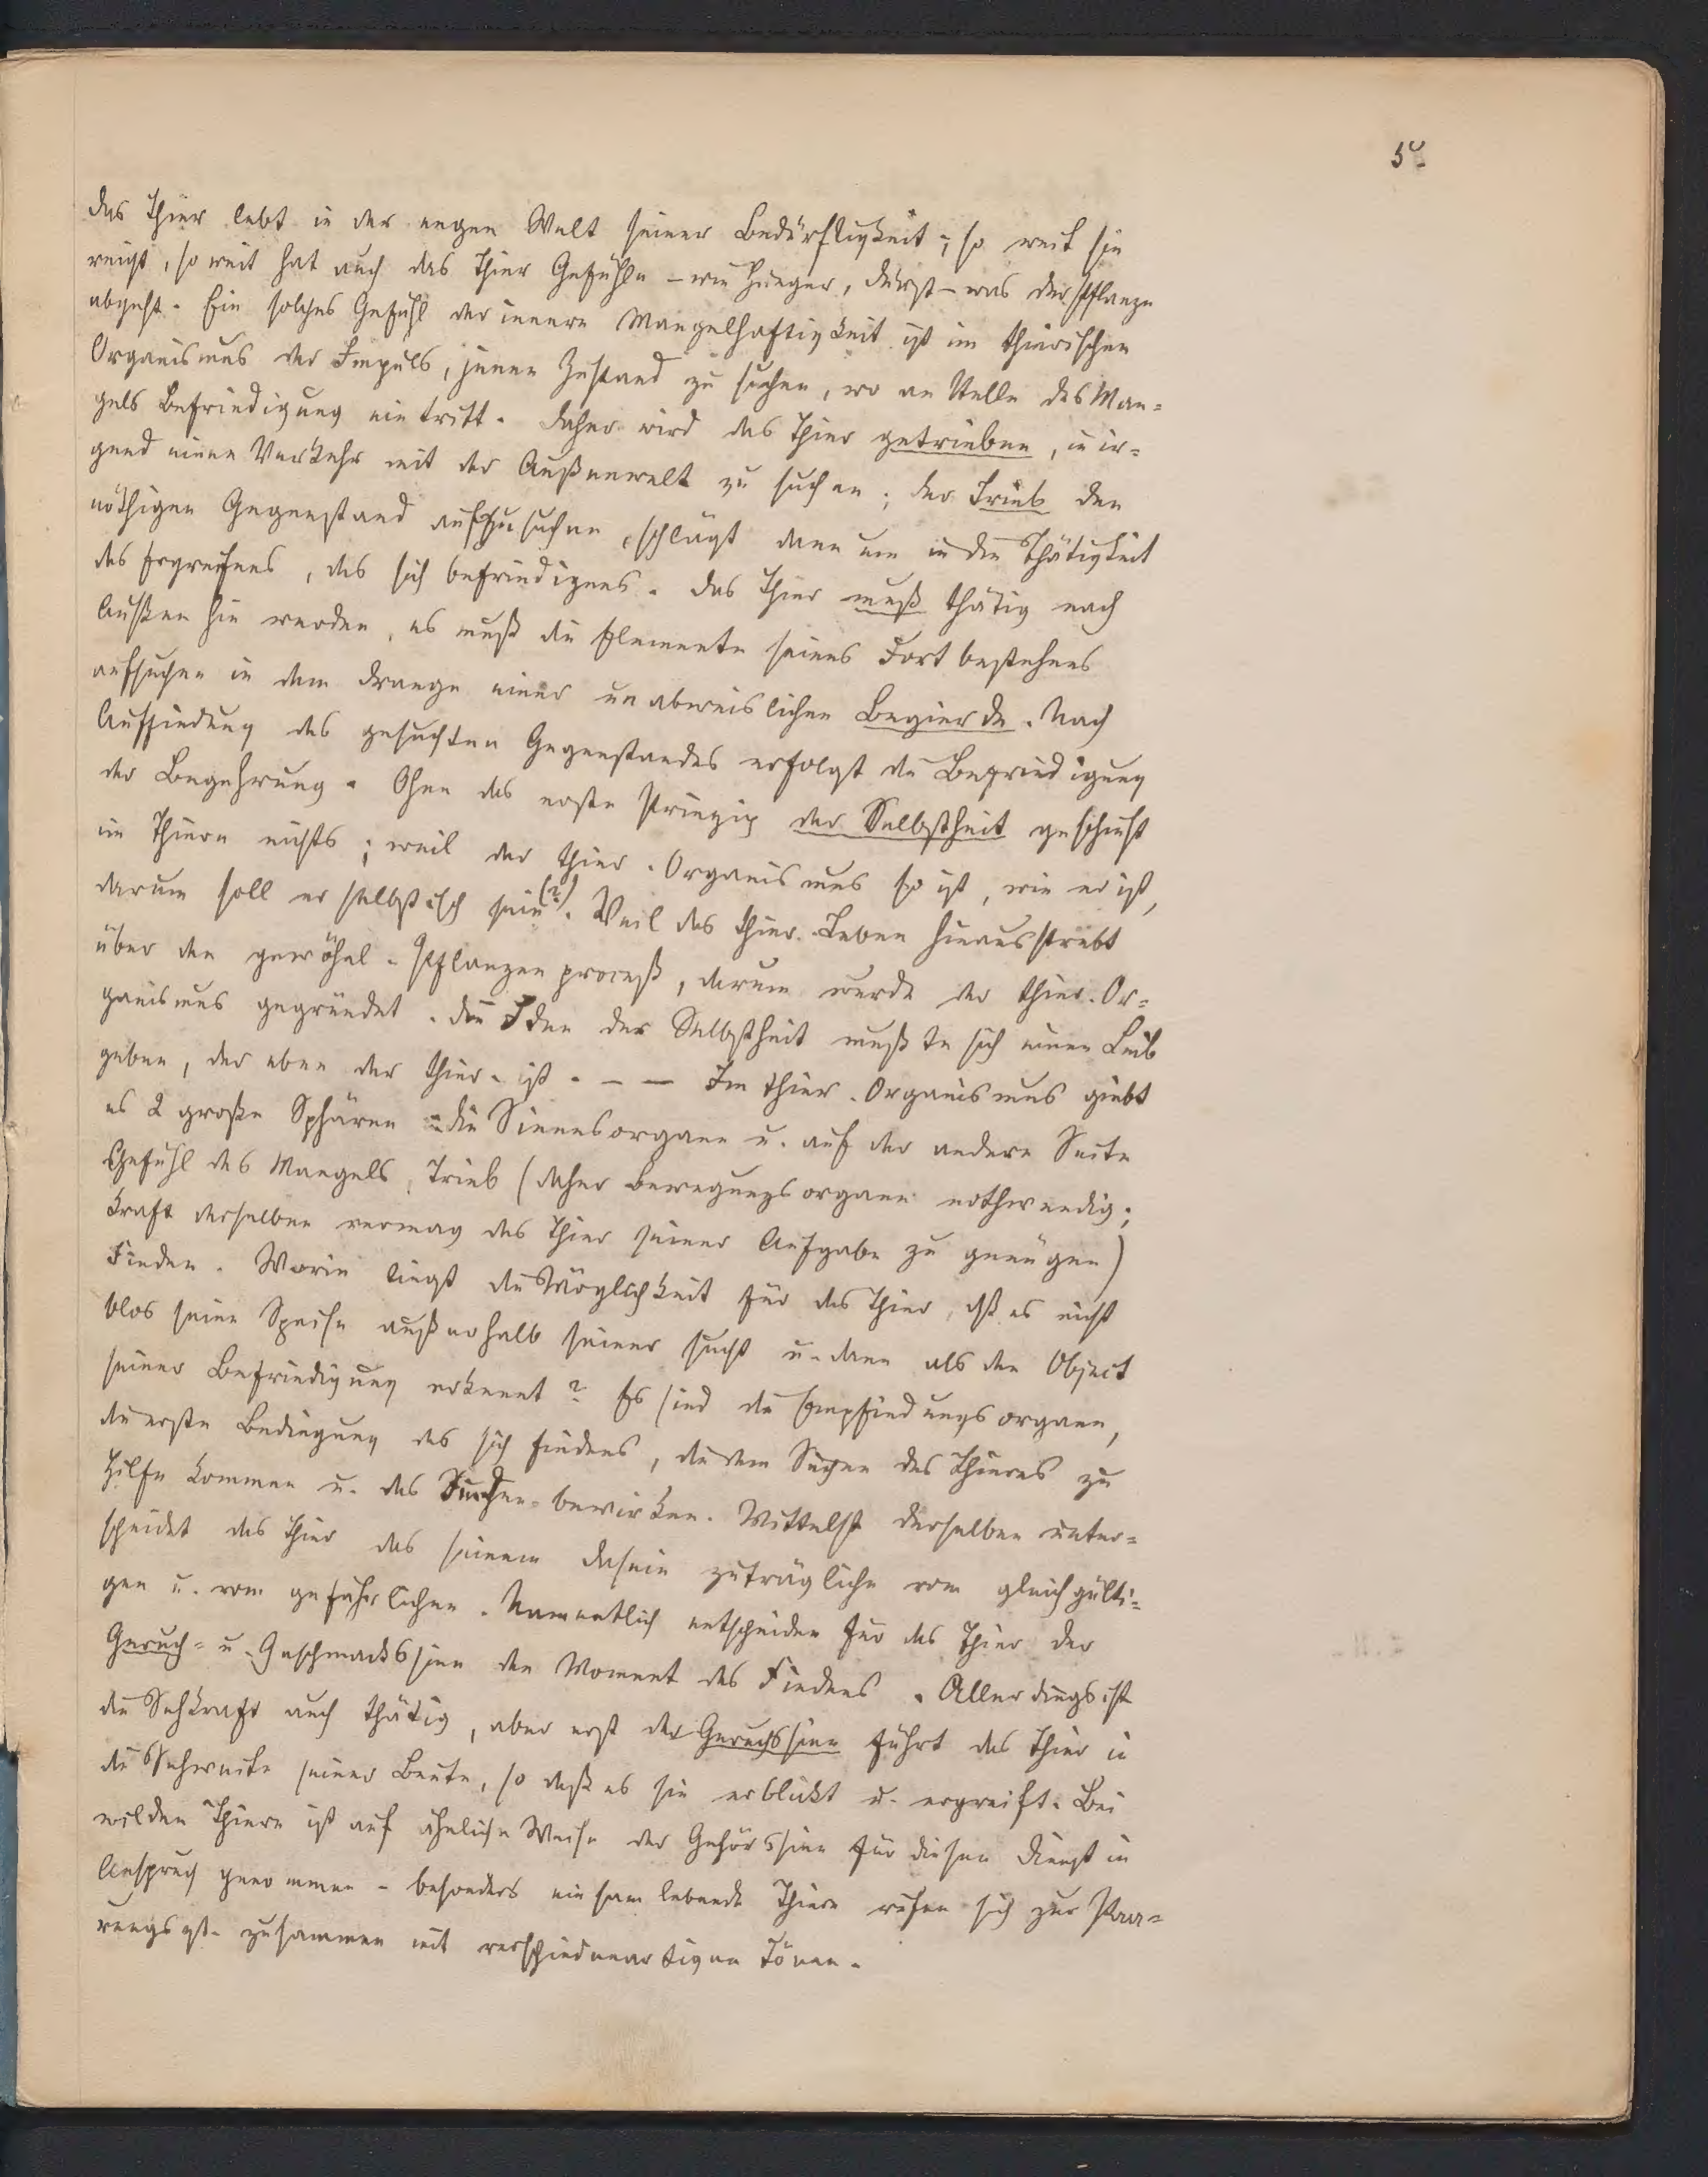 das Thier lebt in der engen Welt seiner Bedürftigkeit; so weit sie
reicht, so weit hat auch das Thier Gefühle – wie Hunger, Durst – was der Pflanze
abgeht. Ein solches Gefühl der innern Mangelhaftigkeit ist im thierischen
Organismus der Impuls, jenen Zustand zu suchen, wo an Stelle des Man=
gels Befriedigung eintritt. Daher wird das Thier getrieben, in ir=
gend einen Verkehr mit der Außenwelt zu suchen; der Trieb den
nöthigen Gegenstand aufzusuchen, schlägt dann um in die Thätigkeit
des Ergreifens, des sich befriedigens. Das Thier muß thätig nach
Außen hin werden, es muß die Elemente seines Fortbestehens
aufsuchen in dem Drange einer unabweislichen Begierde. Nach
Auffindung des gesuchten Gegenstandes erfolgt die Befriedigung
der Begehrung. Ohne das erste Prinzip der Selbstheit geschieht
im Thiere nichts; weil der thier. Organismus so ist, wie er ist,
darum soll er selbstisch sein (?). Weil das thier. Leben hinausstrebt
über den gewöhnl. Pflanzenproceß, darum wurde der thier. Or=
ganismus gegründet. Die Idee der Selbstheit mußte sich einen Leib
geben, der eben der thier. ist. – – Im thier. Organismus giebt
es 2 große Sphären: die Sinnesorgane u. auf der andern Seite
Gefühl des Mangels, Trieb (daher Bewegungsorgane nothwendig;
Kraft derselben vermag das Thier seiner Aufgabe zu genügen)
Finden. Worin liegt die Möglichkeit für das Thier, dß es nicht
blos seine Speise außerhalb seiner sucht u. dann als den Object
seiner Befriedigung erkennt? Es sind die Empfindungsorgane,
die erste Bedingung des sich findens, die dem Suchen des Thieres zu
Hilfe kommen u. das bewirken. Mittelst derselben unter=
scheidet das Thier das seinem Dasein zuträgliche vom gleichgülti=
gen u. vom gefährlichen. Namentlich entscheiden für das Thier der
Geruch= u. Geschmackssinn den Moment des Findens. Allerdings ist
die Sehkraft auch thätig, aber erst der Geruchssinn führt das Thier in
die Sehweite seiner Beute, so daß es sie erblickt u. ergreift. Bei
wilden Thiere ist auf ähnliche Weise der Gehörssinn für diesen Dienst in
Anspruch genommen – besonders einsam lebende Thiere rufen sich zur Paa=
rungszt. zusammen mit verschiedenartigen Tönen.